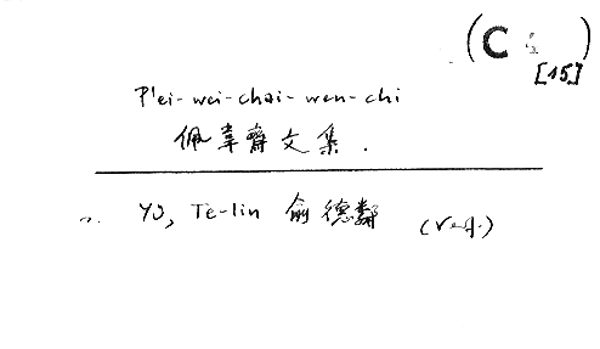 (C )
[15]
P'ei-wei-chai-wen-chi
佩韋齋文集.
Yü, Te-lin 俞德鄰 (Verf.)